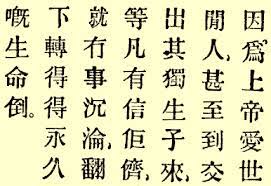 因爲上帝愛世
閒人、甚至到交
出其獨生子來、
等凡有信佢儕、
就冇事沉淪、翻
下轉得得永久
嘅生命倒。